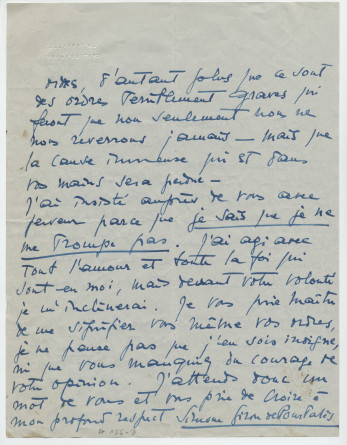 d'autant plus que ce sont
des ordres terriblement graves qui
feront que non seulement nous ne
nous reverrons jamais – mais que
la cause immense qui est dans
vos mains sera perdue –
J'ai insisté auprès de vous avec
ferveur parce que je sais que je ne
me trompe pas. J'ai agi avec
tout l'amour et toute la foi qui
sont en moi, mais devant votre volonté
je m'inclinerai. Je vous prie Maître
de me signifier vos même vos ordres,
je ne pense pas que j'en sois indigne,
ni que vous manquiez du courage de
votre opinion. J'attends donc un
mot de vous et vous prie de croire à
mon profond respect Simone Giron de Pourtalès